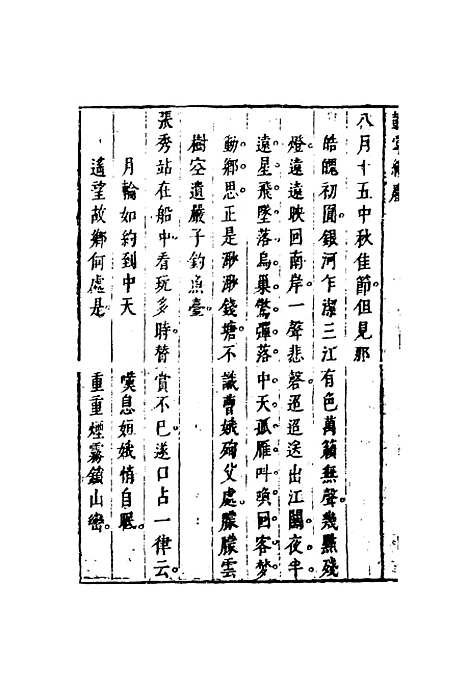 八月十五中秋佳節。但見那
皓魄初圓。銀河乍潔。三江有色。萬籟無聲。幾點殘
燈。遠遠映回南岸。一聲悲磬。迢迢送出江關。夜半
遠星飛墜落。烏巢驚彈落中天。孤雁叫喚回客夢。
動鄉思。正是渺渺錢塘。不識曹娥殉父處。朦朦雲
樹。空遺嚴子釣魚臺。
張秀站在船中。看玩多時。替賞不已。遂口占一律云。
月輪如約到中天 嘆息姮娥悄自眠。
遙望故鄉何處是 重重煙霧鎖山巒。